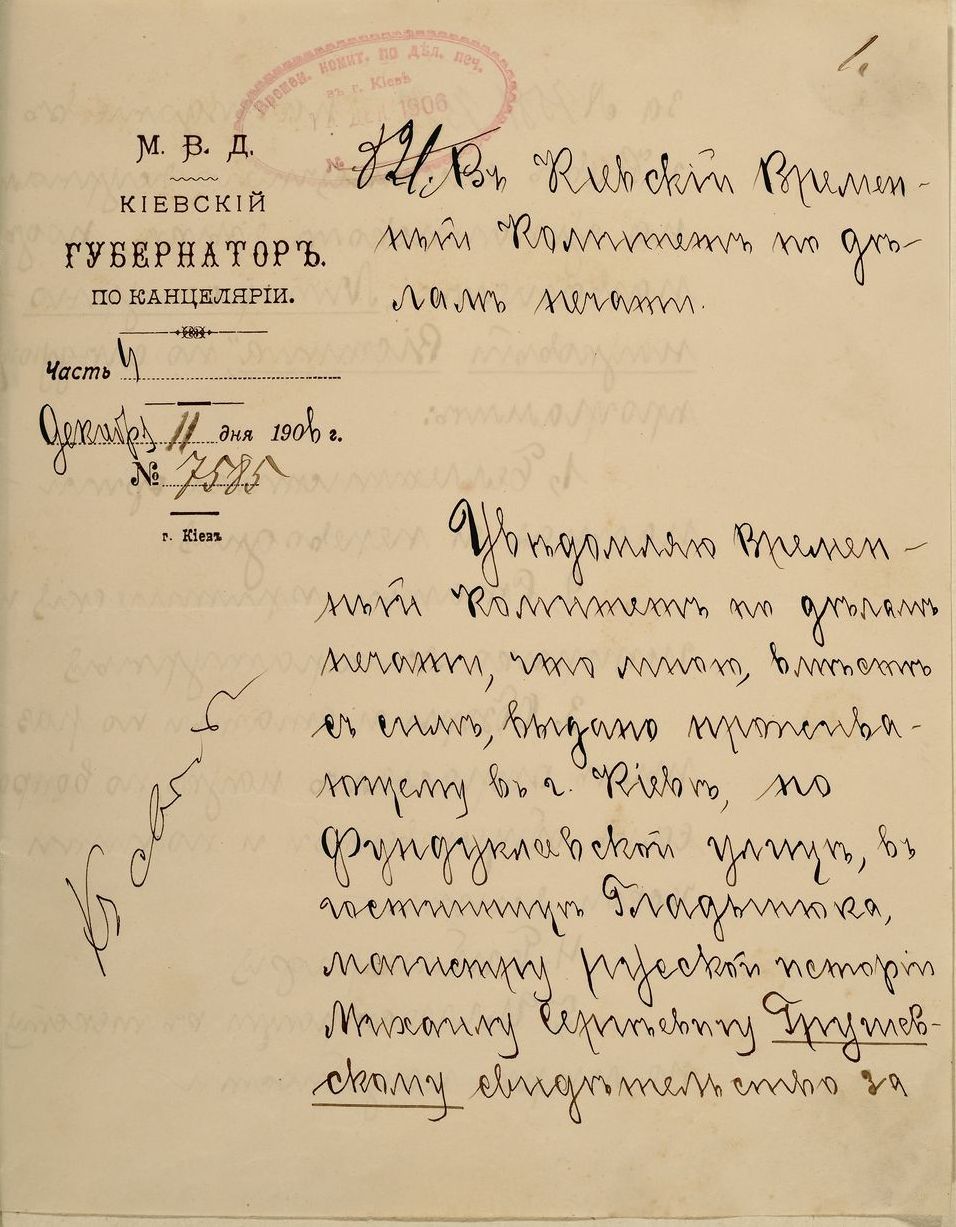 1.
Времен. комит. по дѣл. печ.
въ г. Кіевѣ
1906
№ 821.
М. В. Д.
КІЕВСКІЙ
ГУБЕРНАТОРЪ.
ПО КАНЦЕЛЯРІИ.
Часть 4
Декабря 11 дня 1906 г.
№ 7585
г. Кіевъ
Въ Кіевскій Времен-
ный Комитетъ по дѣ-
ламъ печати.
Увѣдомляю Времен-
ный Комитетъ по дѣламъ
печати, что мною, вмѣстѣ
съ симъ, выдано прожива-
ющему въ г. Кіевѣ, по
Фундуклеевской улицѣ, въ
гостинницѣ Гладынюка,
магистру русской исторіи
Михаилу Сергѣевичу Грушев-
скому свидѣтельство за